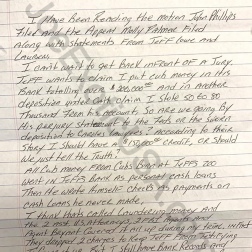 I Have been Reading the motion John Phillips
Filed and the Appeal Molly Palmer Filed
Along with Statements From Jeff Lowe and
Lauren.
I can't wait to get Back infront of A Jury.
Jeff wants to claim I put cub money in his
Bank totalling over $200,000.00 and in another
deposition under oath claim I stole 50 to 80
Thousand from his account. So are we going by
His perjury statement to the Feds or the sworn
Deposition to Carole's lawyers? according to their
Story I should have A $150,000 credit, or should
We just tell the Truth?
All Cub money from Cubs born at Jeff's zoo
went in Jeff's Bank as personal cash loans
Then He wrote himself checks as payments on
Cash Loans he never made.
I think that's called laundering money and
the 2
Agent Bryant Covered it all up during my trial, in fact
They dropped 2 charges to Keep
I still have Bank Records and